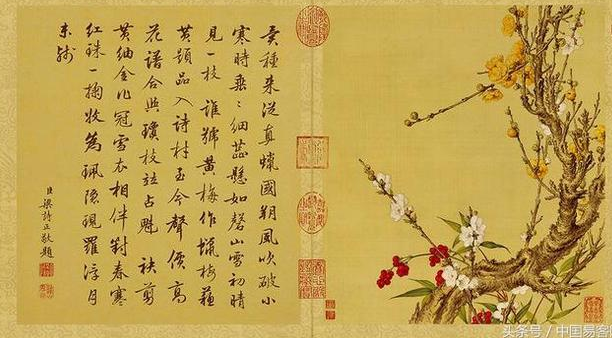 種來從真蠟國朔風吹破小
寒時垂〻細蕊懸如磬山雪初晴
見一枝 誰號黃梅作蠟梅蘓
黃題品入詩材至今聲價高
花譜合與瓊枝竝占魁 袂剪
黃紬金冠雪衣相伴對春寒
紅珠一掬收為珮隱現羅浮月
未殘
臣梁詩正敬題
头条号 / 中国易客